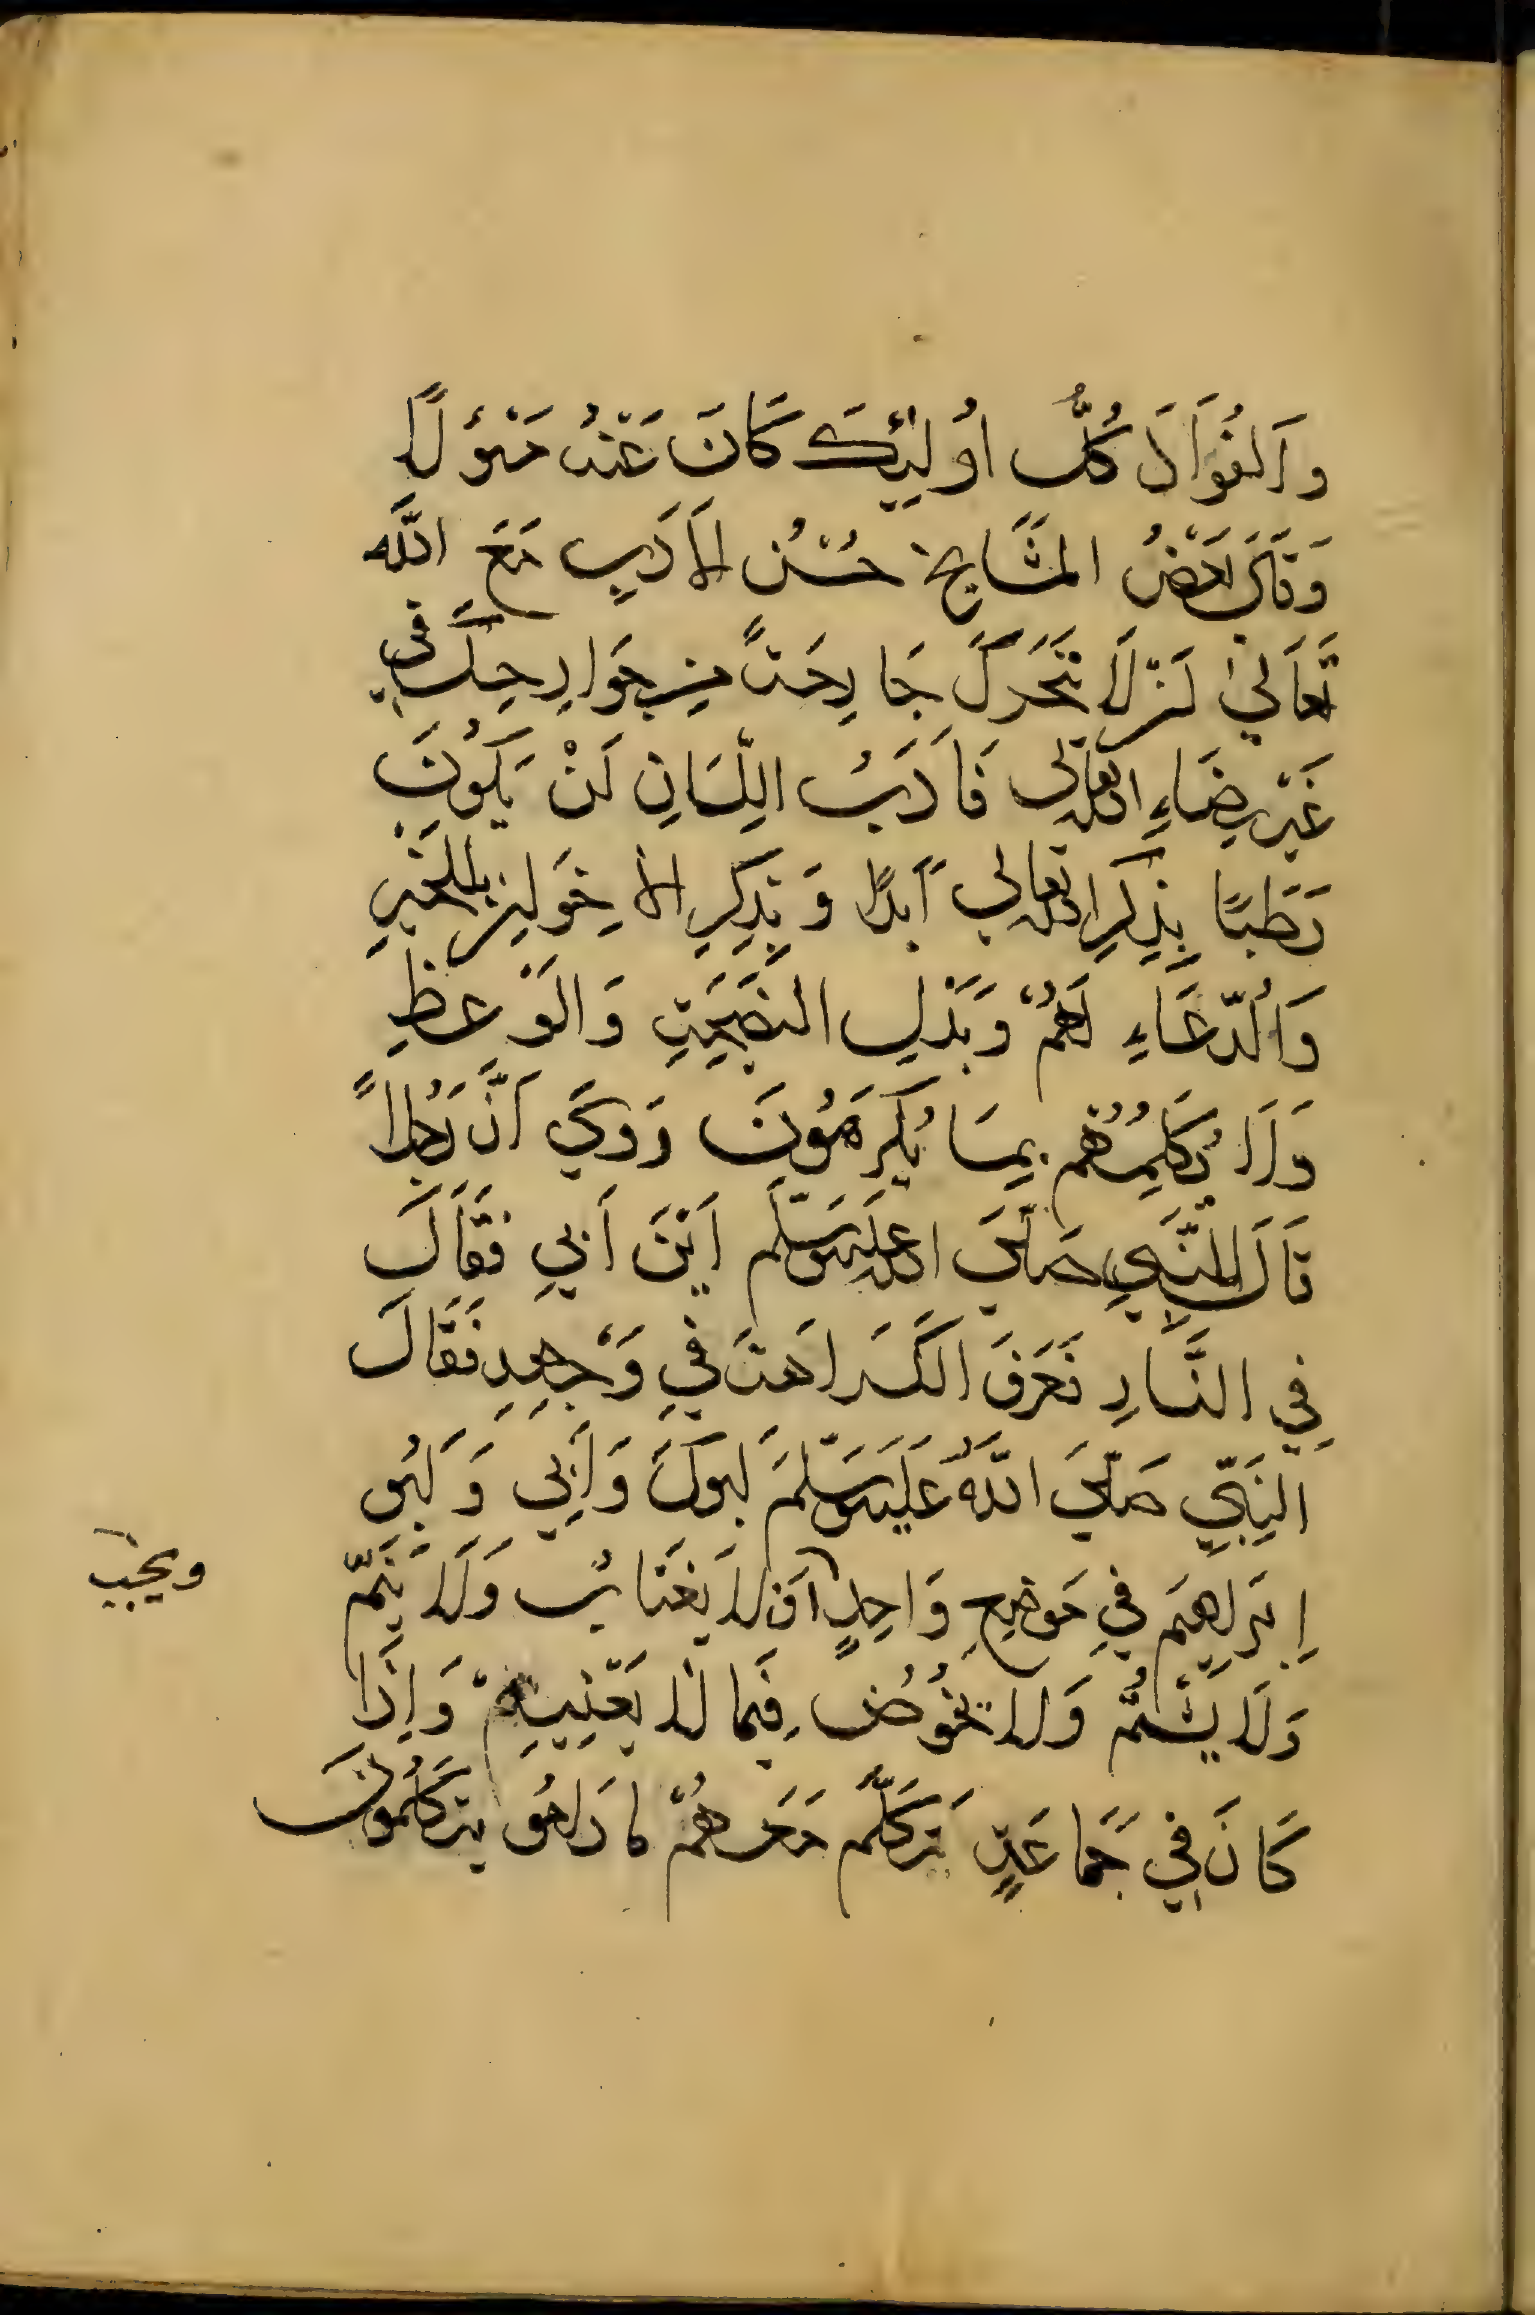 وَالفُؤَادَ كُلُّ اُولَئِكَ كَانَ عَنْهُ مَسْؤُلًا
وَقَالَ بَعْضُ المَشَايِخِ حُسْنُ الأَدَبِ مَعَ اللَّه
تَعَالَىٰ اَنْ لَا تَتَحَرَكَ جَارِحَةً مِن جَوَارِحِكَ فِي
غَيْرِ رِضَاءِ الله تعَالَى فَأَدَبُ اللِّسَانِ اَنْ يَكُونَ
رَطْبًا بِذِكرِ الله تعَالى اَبَدًا وَ بِذِكرِ الاِخوَانِ بِالخَيْرِ
وَالُدّعَاءِ لَهُمْ وَبَذْلِ النَصِيحَةِ وَالوَعظِ
وَلَا يُكَلِمُهُم بِمَا يُكرَهُونَ رَوِيَ اَنَّ رَجُلًا
قَالَ لِلنَّبِي صَلّيَ الله عَلَيه وسَلّم اَيْنَ اَبِي فَقَالَ
فِي النَّارِ فَعَرَفَ الكَرَاهَةَ فِي وَجْهِهِ فَقَالَ
النَبِيّ صَلّيَ اللَّهُ عَلَيه وَسَلّمَ اَبوكَ وَاَبِي وَاَبُو
اِبرَاهِيَم فِي مَوضِعٍ وَاحِدٍ اَن لَا يغتَابُ وَلَا يَنِمّ
وَلَا يشْتُمْ وَلَا يَخُوُضُ فِيما لَا يَعْنِيِهِ وَاِذَا
كَانَ فِي جَمَاعَةٍ يَتَكَلّمُ مَعَهُمْ مَا دَامُو يتَكَلُمُونَ
ويجب